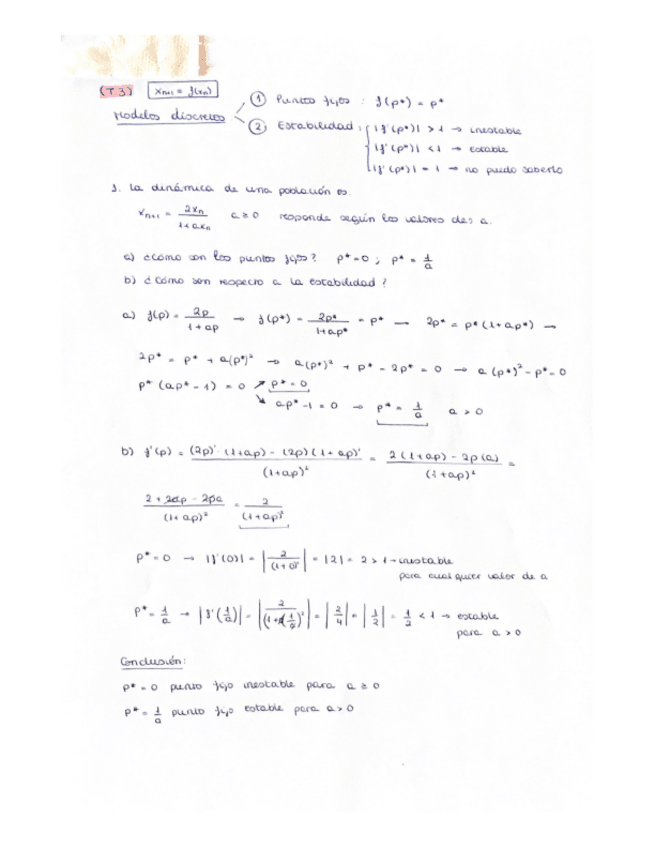 (T3) xn+1 = f(xn)
Modelos discretos
① Puntos fijos : f(p*) = p*
② Estabilidad : { |f'(p*)| > 1 → inestable
|f'(p*)| < 1 → estable
|f'(p*)| = 1 → no puedo saberlo
1. La dinámica de una población es:
xn+1 = 2xn / (1+axn) a ≥ 0 responde según los valores de: a.
a) ¿Cómo son los puntos fijos? p* = 0 ; p* = 1/a
b) ¿Cómo son respecto a la estabilidad?
a) f(p) = 2p / (1+ap) → f(p*) = 2p* / (1+ap*) = p* → 2p* = p*(1+ap*) →
2p* = p* + a(p*)² → a(p*)² + p* - 2p* = 0 → a(p*)² - p* = 0
p* (ap* - 1) = 0 ↗ p* = 0
↘ ap* - 1 = 0 → p* = 1/a a > 0
b) f'(p) = ((2p)' · (1+ap) - (2p)(1+ap)') / (1+ap)² = (2(1+ap) - 2p(a)) / (1+ap)² =
(2 + 2ap - 2pa) / (1+ap)² = 2 / (1+ap)²
p* = 0 → |f'(0)| = |2 / (1+0)²| = |2| = 2 > 1 → inestable
para cualquier valor de a
p* = 1/a → |f'(1/a)| = |2 / (1+a(1/a))²| = |2/4| = |1/2| = 1/2 < 1 → estable
para a > 0
Conclusión:
p* = 0 punto fijo inestable para a ≥ 0
p* = 1/a punto fijo estable para a > 0